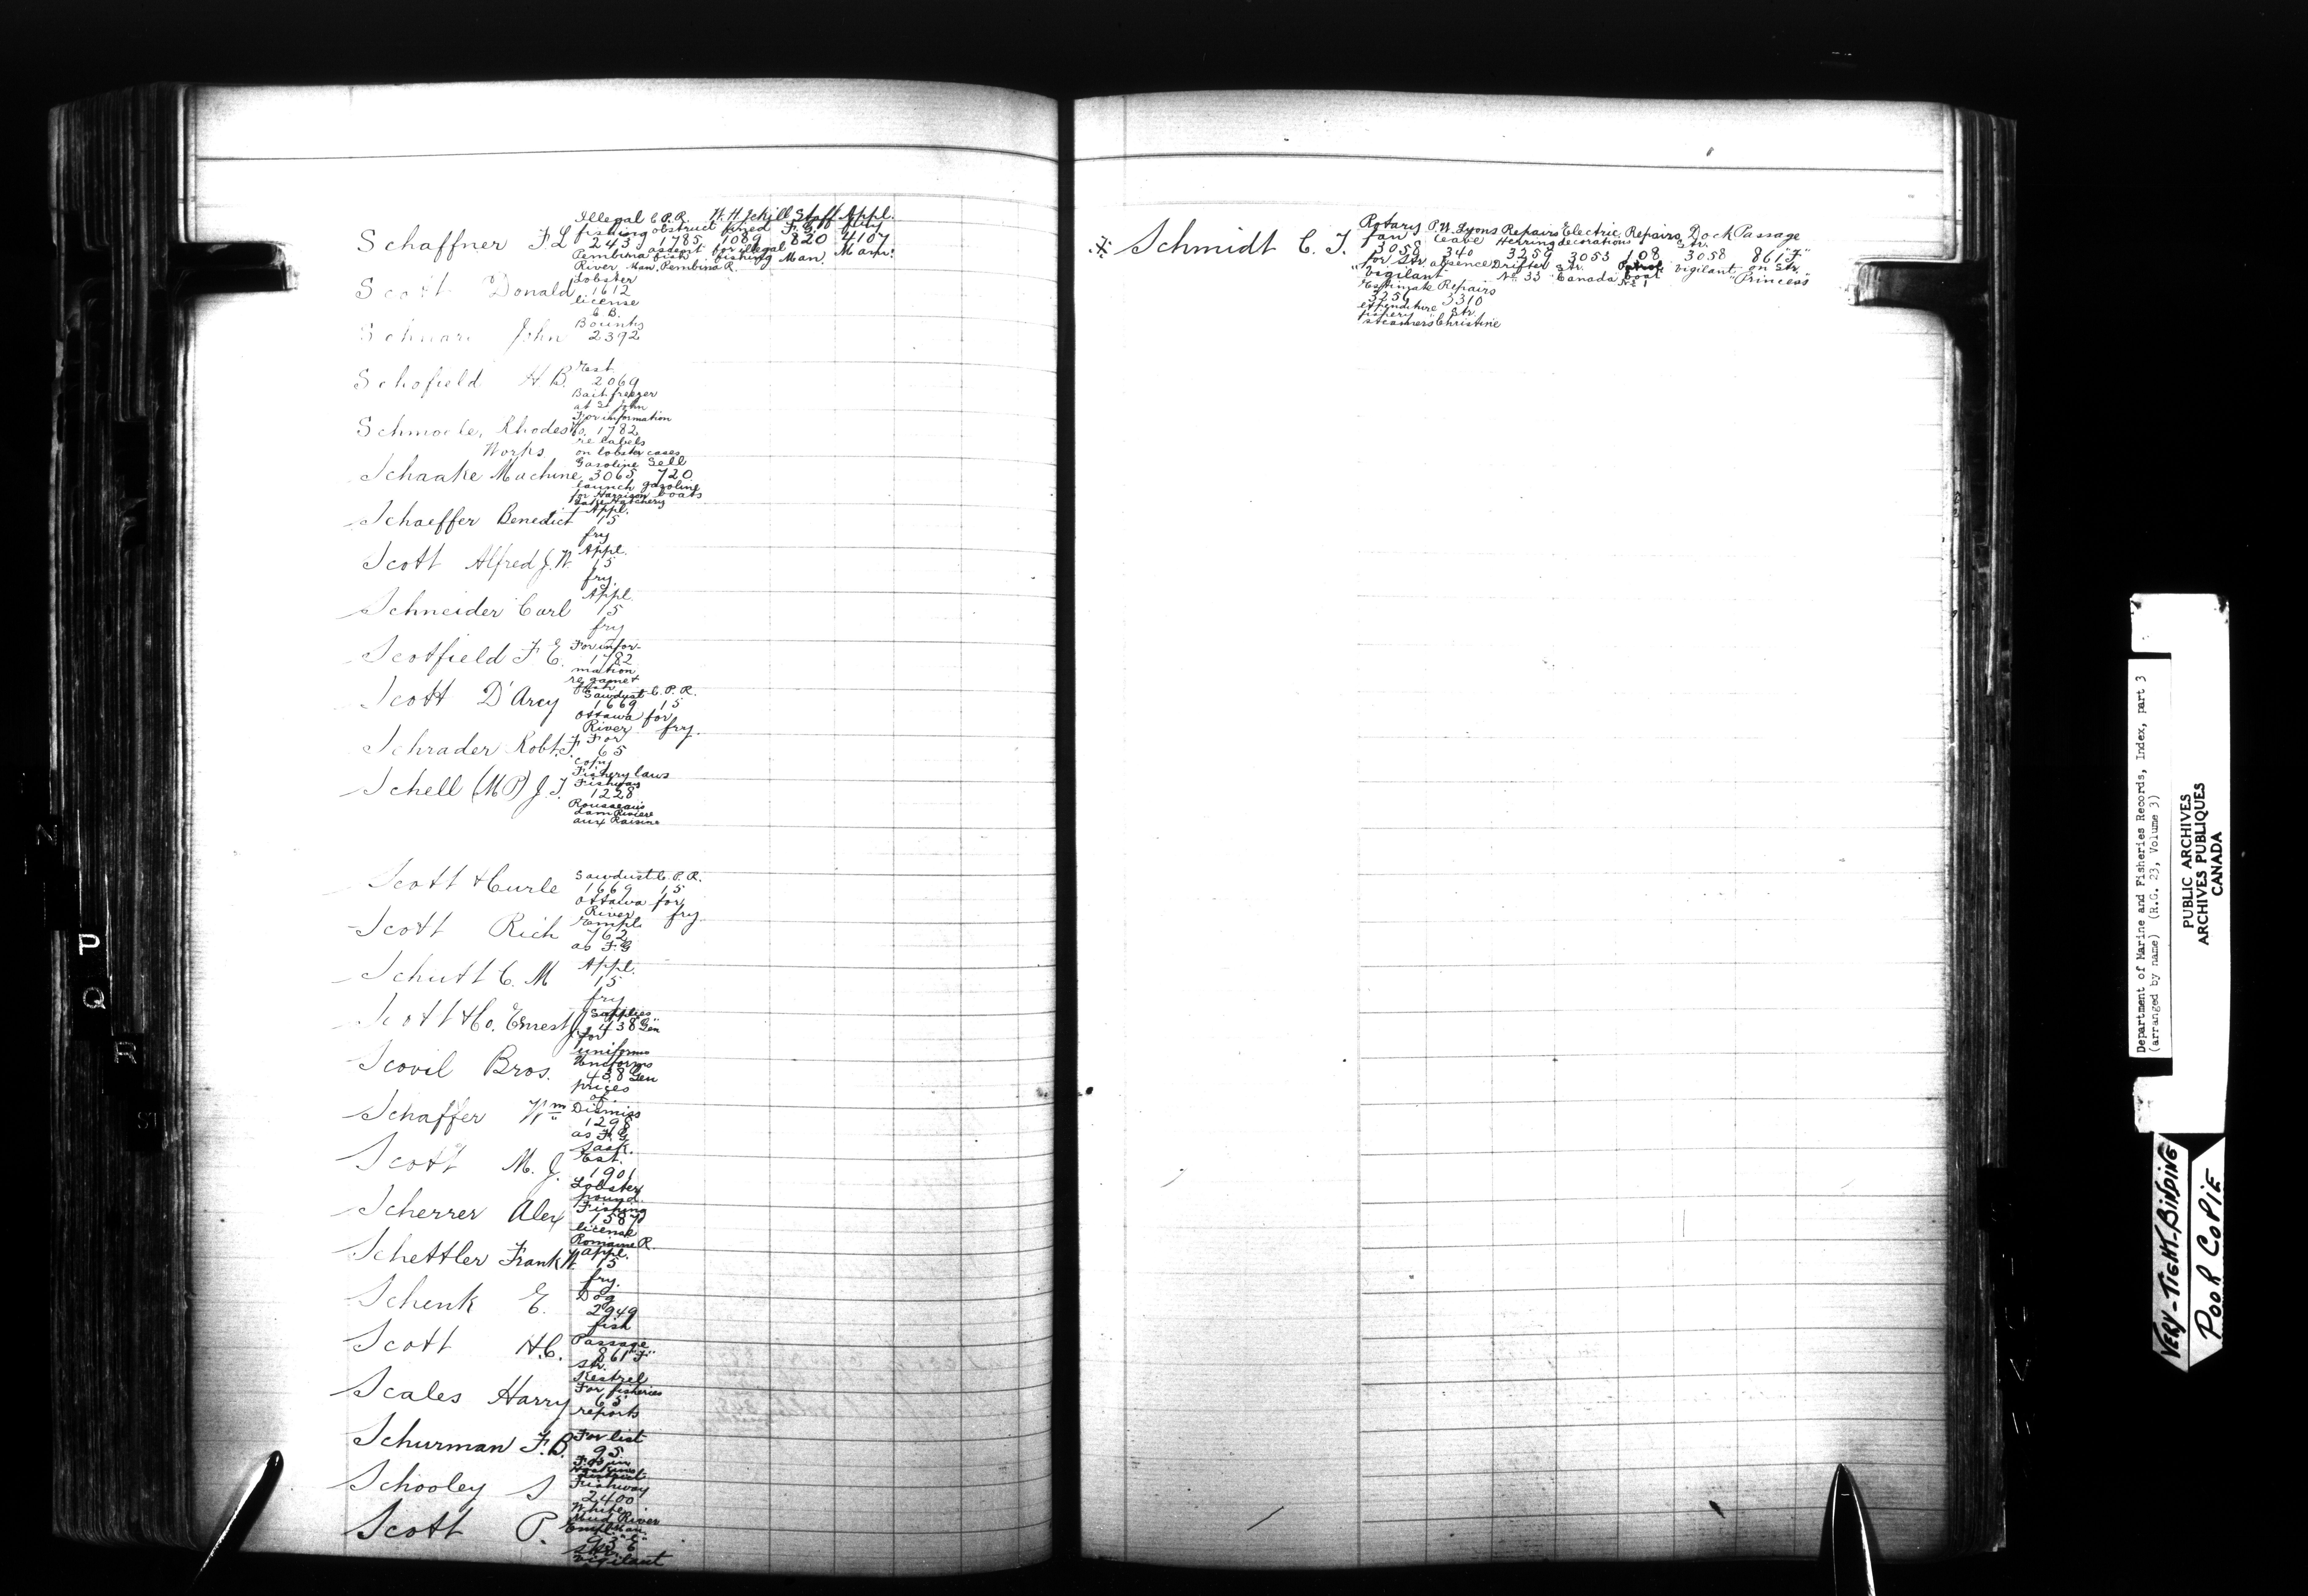 Illegal C.P.R. W.H. Schill Staff Appl.
fishing obstruct fined F.G. fry
Schaffner F.L 243 1785 1089 820 4107
Pembina assent for illegal Man. Man.
River fish fishing
Man. Pembina R.
Lobster
Scott Donald 1612
license
C.B.
Bounty
John 2392
Est.
Schofield H B. 2069
Bait freezer
at St John
For information
Schmoele, Rhodes Co. 1782
re labels
Works on lobster cases
Gasoline Sell
Schaake Machine 3065 720
launch gasoline
for Harrison boats
Lake Hatchery
Appl.
Schaeffer Benedict 15
fry
Appl.
Scott Alfred J. W. 15
fry.
Appl.
Schneider Carl 15
fry
For infor-
Scotfield F E. 1782
mation
re game &
fish
Sawdust C.P.R.
Scott D'Arcy 1669 15
Ottawa for
River fry.
For
Schrader Robt. F. 65
copy
Fishery laws
Fishway
Schell (M P) J. T. 1228
Rousseau's
dam Riviere
aux Raisins
Sawdust C.P.R.
Scott & Curle 1669 15
Ottawa for
River fry.
Empl.
Scott Rich 762
as F.G
Appl.
Schutt C. M 15
fry
Supplies
Scott & Co. Ernest J. 438 "Gen"
for
uniforms
Uniforms
Scovil Bros. 438 Gen
prices
of
Dismiss
Schaffer Wm 1298
as F.G.
Sask.
Est.
Scott M. J. 1901
Lobster
pound.
Fishing
Scherrer Alex 1587
license
Romaine R.
Appl.
Schettler Frank W. 15
fry.
Dog
Schenk E. 2949
fish
Passage
Scott H.C. 861 "F"
Str.
Kestrel
For fisheries
Scales Harry 65
reports
For list
Schurman F.B. 95
F.Os in
District
Fishway
Schooley S 2400
White
Mud River
Man.
Empl.
Scott P. 93 "E"
Str.
Vigilant
Rotary P.W. Lyons Repairs Electric Repairs Dock Passage
Schmidt C. J. fan leave Herring decorations Str.
3058 340 3259 3053 108 3058 861 "F"
for Str. absence Drifter Str. Patrol Vigilant on Str.
"Vigilant No. 33 Canada boat "Princess"
No 1
Estimate Repairs
3259 3310
expenditure Str.
fishery
steamers "Christine
N
P
Q
R
ST
Department of Marine and Fisheries Records, Index, part 3
(arranged by name) (R.G. 23, Volume 3)
PUBLIC ARCHIVES
ARCHIVES PUBLIQUES
CANADA
VERY-TIGHT-BINDING
POOR COPIE